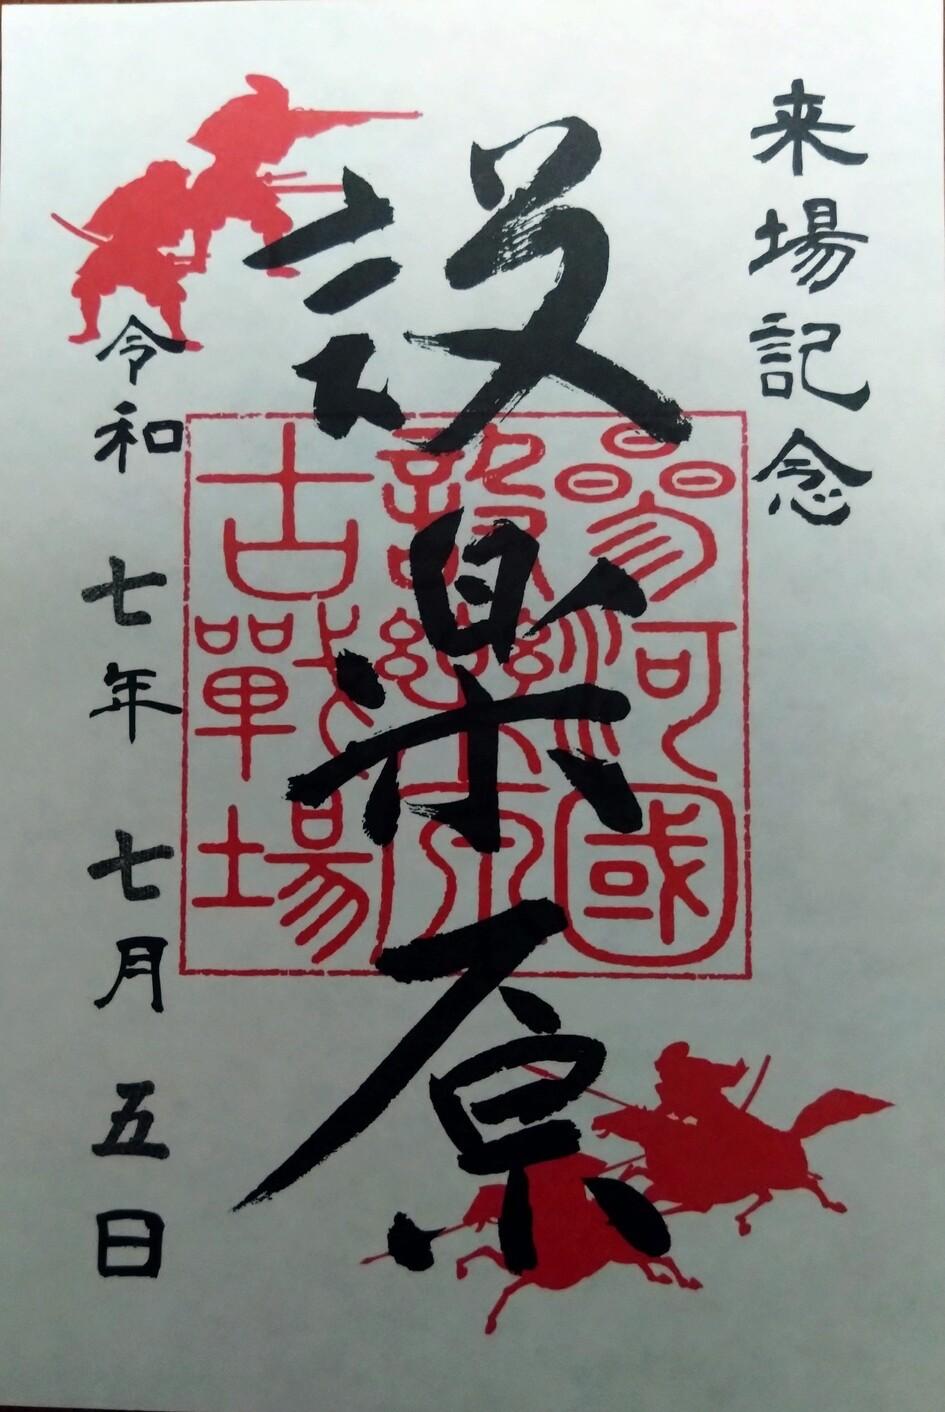 来場記念
設楽原
参河國
設樂原
古戰場
令和 七年 七月 五日